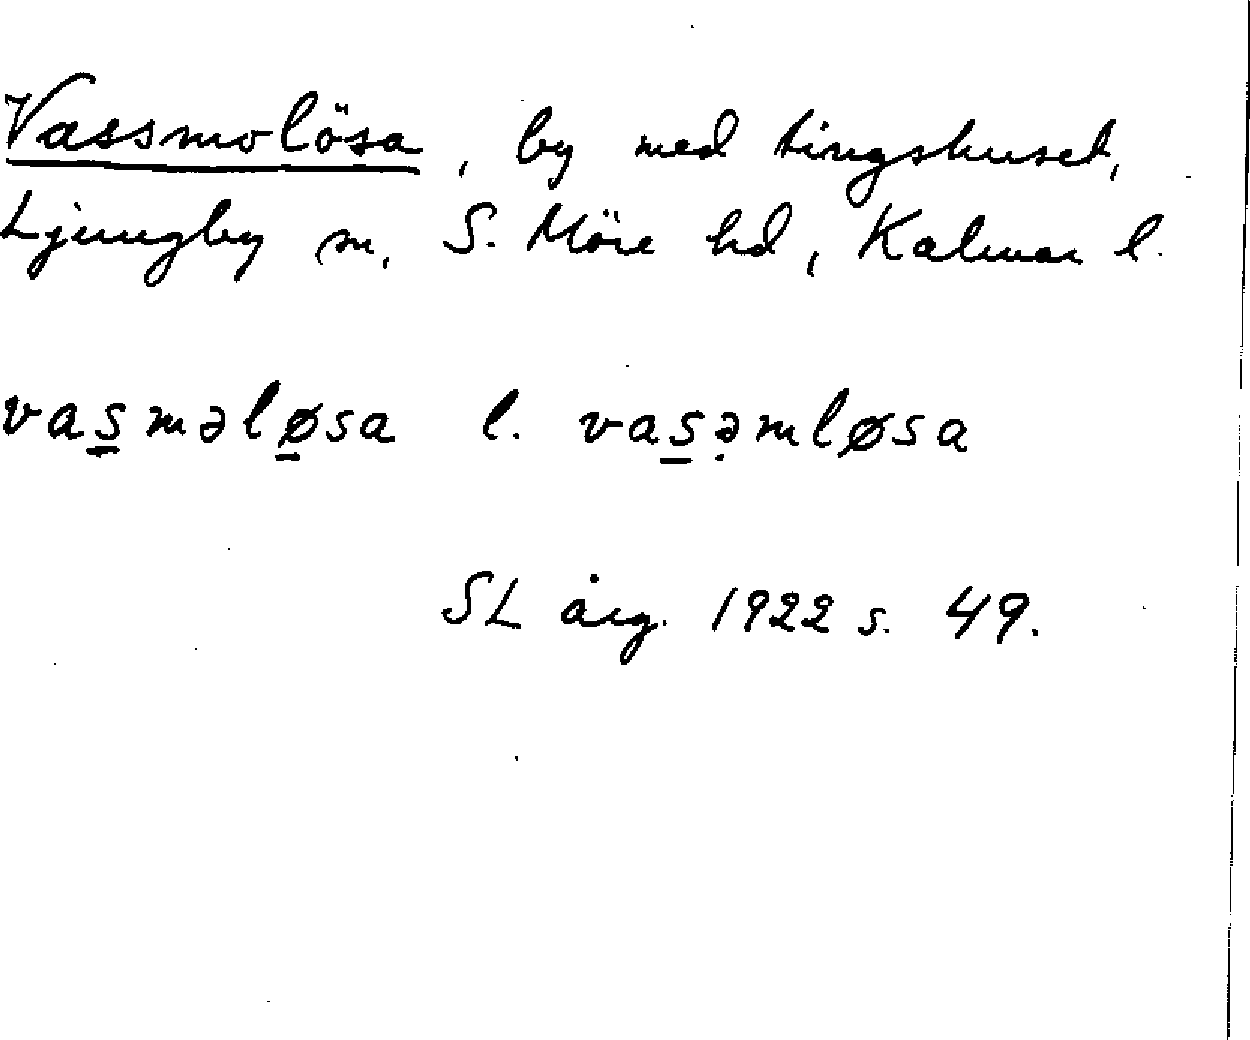 Vassmolösa, by med tingshuset,
Ljungby sn, S. Möre hd, Kalmar l.
vas̲məlø̲sa l. vas̲ə̣mløsa
SL årg. 1922 s. 49.